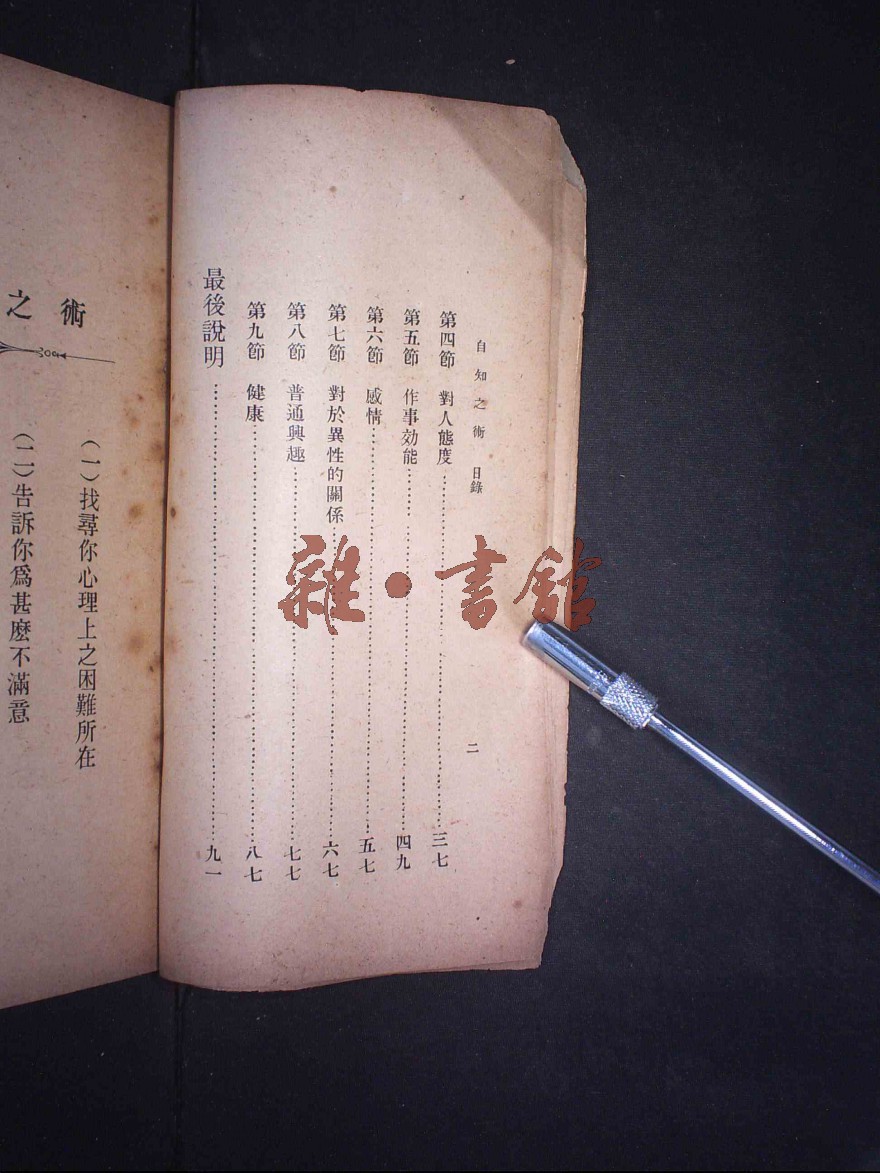 自知之術 目錄
二
第四節 對人態度……三七
第五節 作事効能……四九
第六節 感情……五七
第七節 對於異性的關係……六七
第八節 普通興趣……七七
第九節 健康……八七
最後說明……九一
之術
(一)找尋你心理上之困難所在
(二)告訴你爲甚麽不滿意
雜·書館